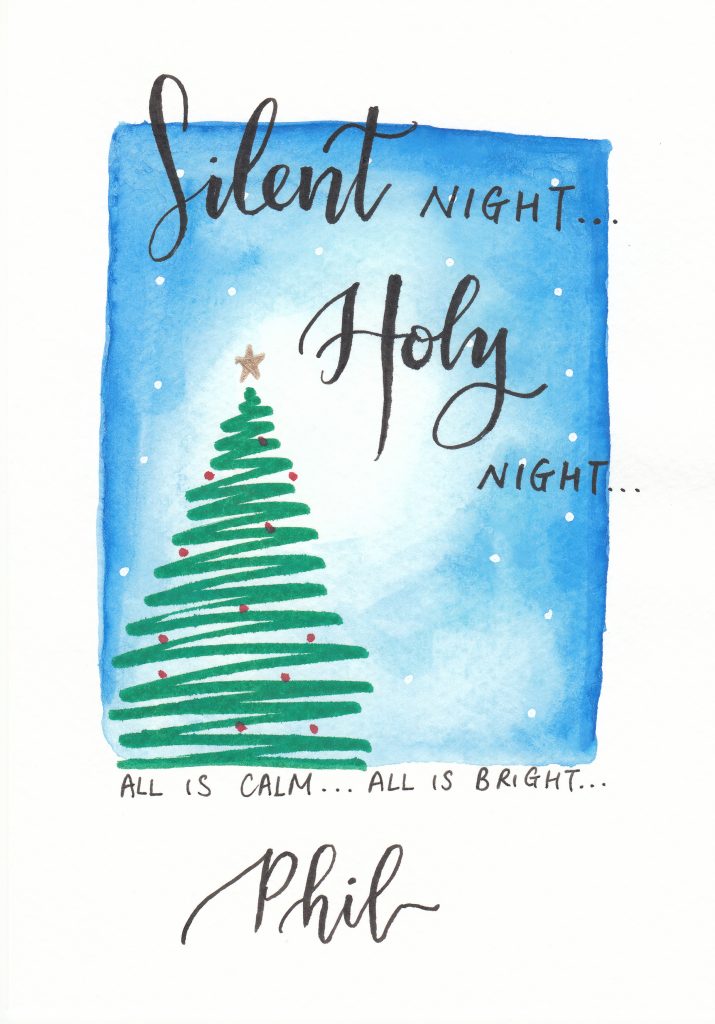 Silent NIGHT...
Holy
NIGHT...
ALL IS CALM... ALL IS BRIGHT...
Phil